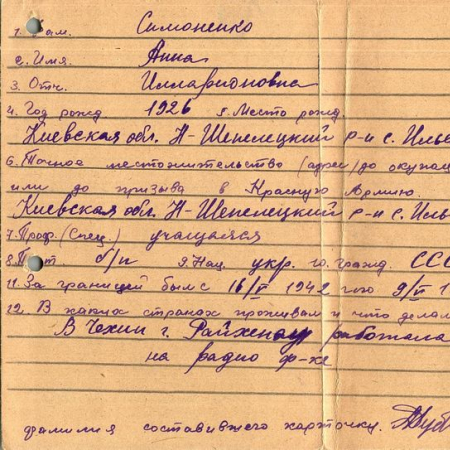 1. Фам. Симоненко
2. Имя. Анна
3. Отч. Илларионовна
4. Год рожд. 1926 5. Место рожд.
Киевская обл. Н-Шепелецкий р-н с. Илье
6. Точное местожительство (адрес) до оккупац
или до призыва в Красную Армию
Киевская обл. Н-Шепелецкий р-н с. Иль
7. Проф. (Спец.) учащаяся
8. б/п 9. Нац. укр. 10. гражд. ССС
11. За границей был с 16/V 1942 по 9/V 1
12. В каких странах проживал и что делал
В Чехии г. Райхенау работала
на радио ф-ке
фамилия составившего карточку.